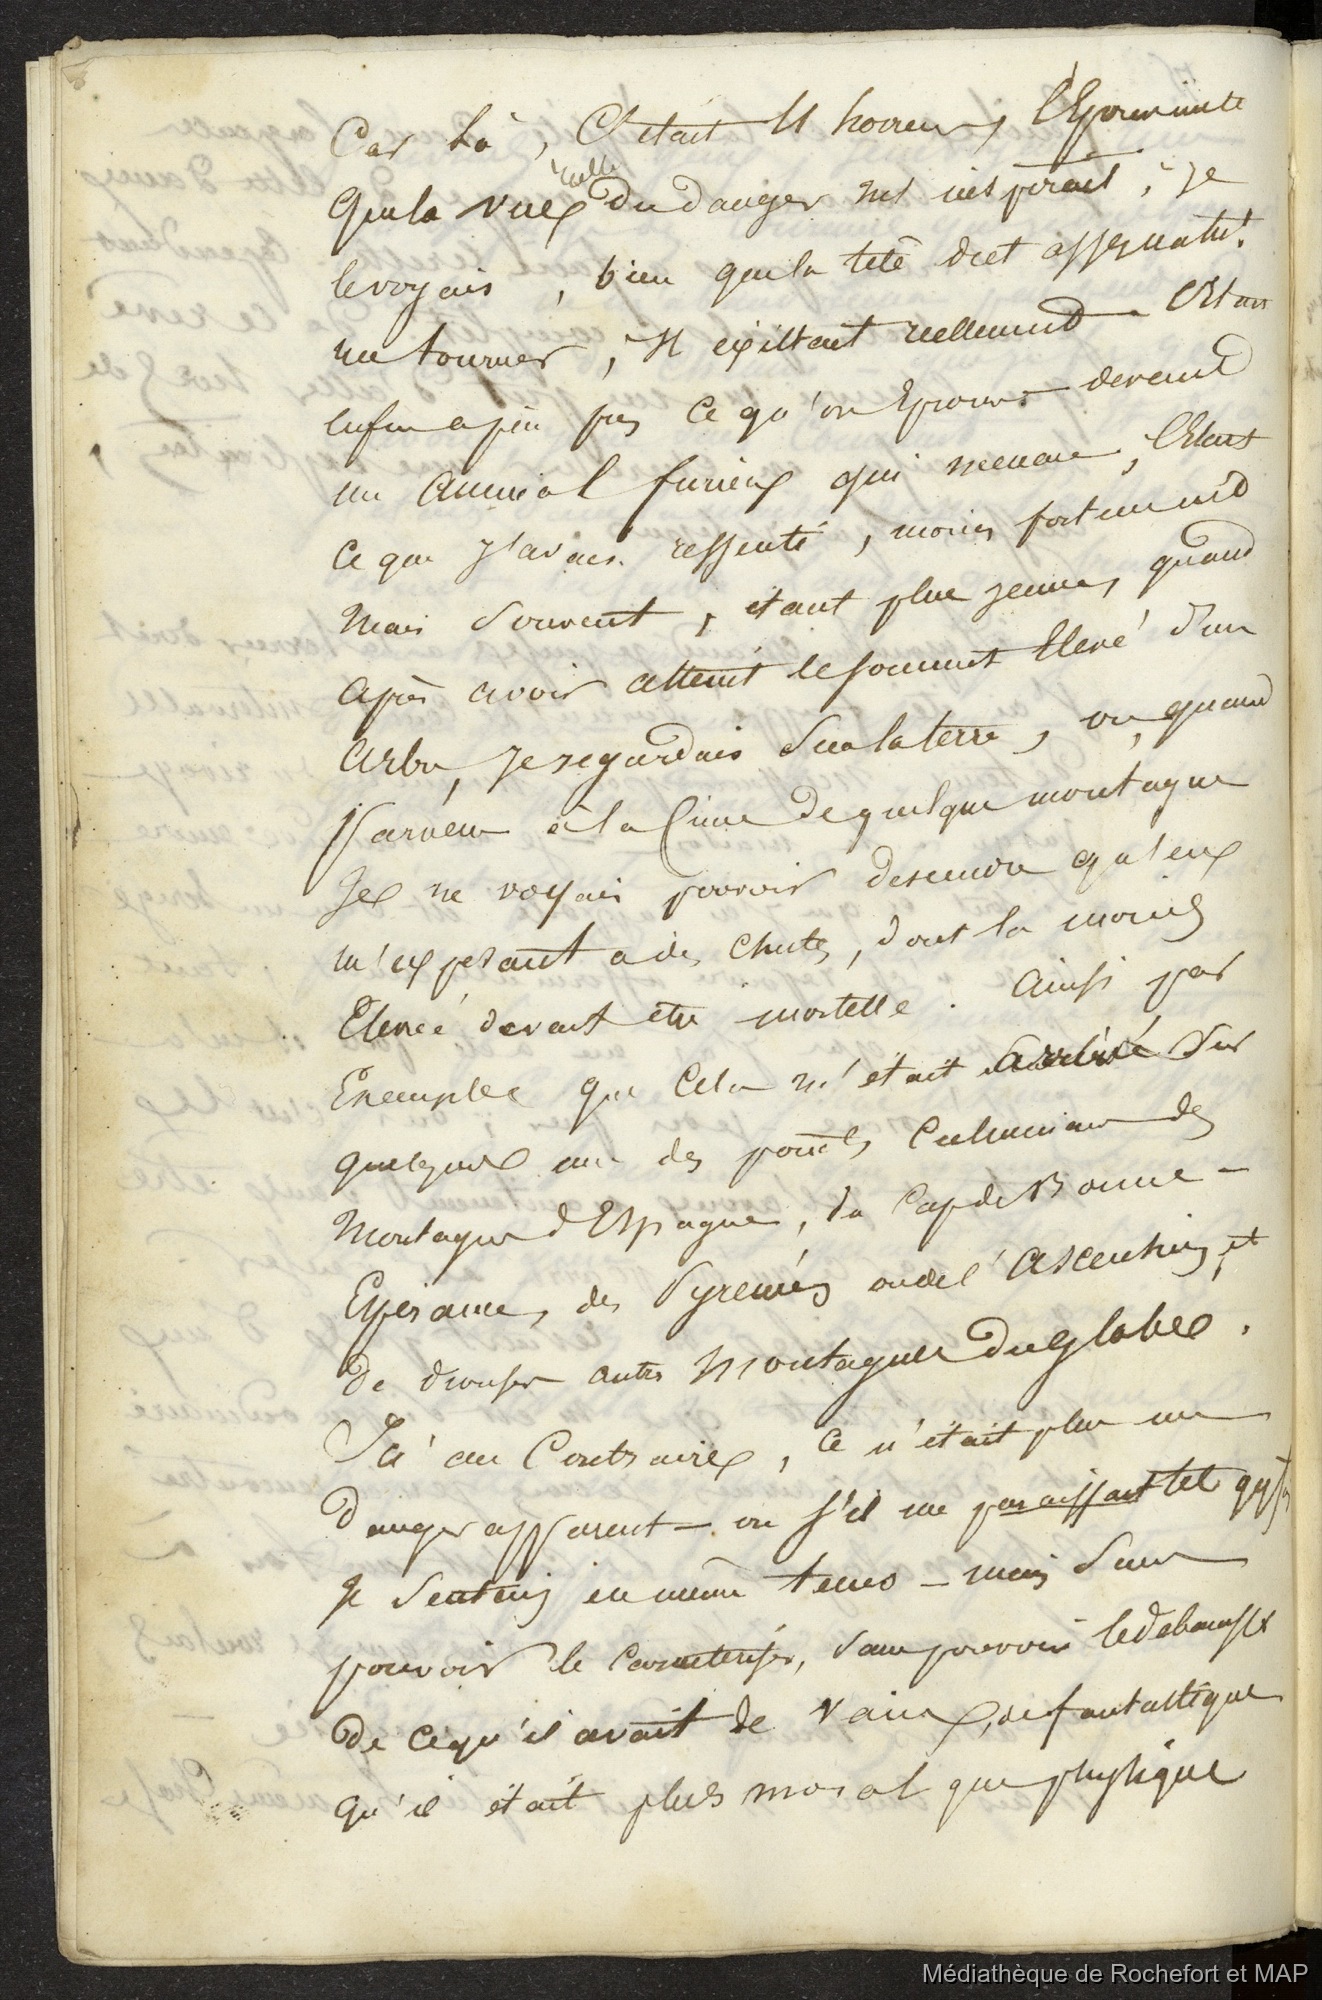 Car là, C'était l'horreur, l'Epouvante
que la vue réelle du danger m'inspirait; je
le voyais, bien que la tête dut assurément
me tourner, il existait réellement. C'était
enfin a peu pres ce qu'on Eprouve devant
un animal furieux qui menace, C'était
Ce que j'avais ressenti, moins fortement
Mais Souvent, étant plus jeune, quand
Après avoir atteint le sommet Elevé d'un
Arbre, je regardais Sur la terre, ou, quand
Parvenu à la Cime de quelque montagne
Je ne voyais pouvoir descendre qu'en
m'exposant a des chutes, dont la moins
Elevée devait être mortelle. Ainsi par
Exemple que Cela m'était arrivé Sur
quelques uns des points Culminans des
Montagnes d'Espagne, du Cap de Bonne-
Espérance, des Pyrenées ou de l'Ascension, et
de diverses autres Montagnes du globe.
Ici au Contraire, ce n'était plus un
danger apparent – ou s'il me paraissait tel
je Sentais en même tems – mais Sans
pouvoir le Caracteriser, Sans pouvoir
De ce qu'il avait de vain, de fantastique
qu'il était plus moral que physique
Médiathèque de Rochefort et MAP